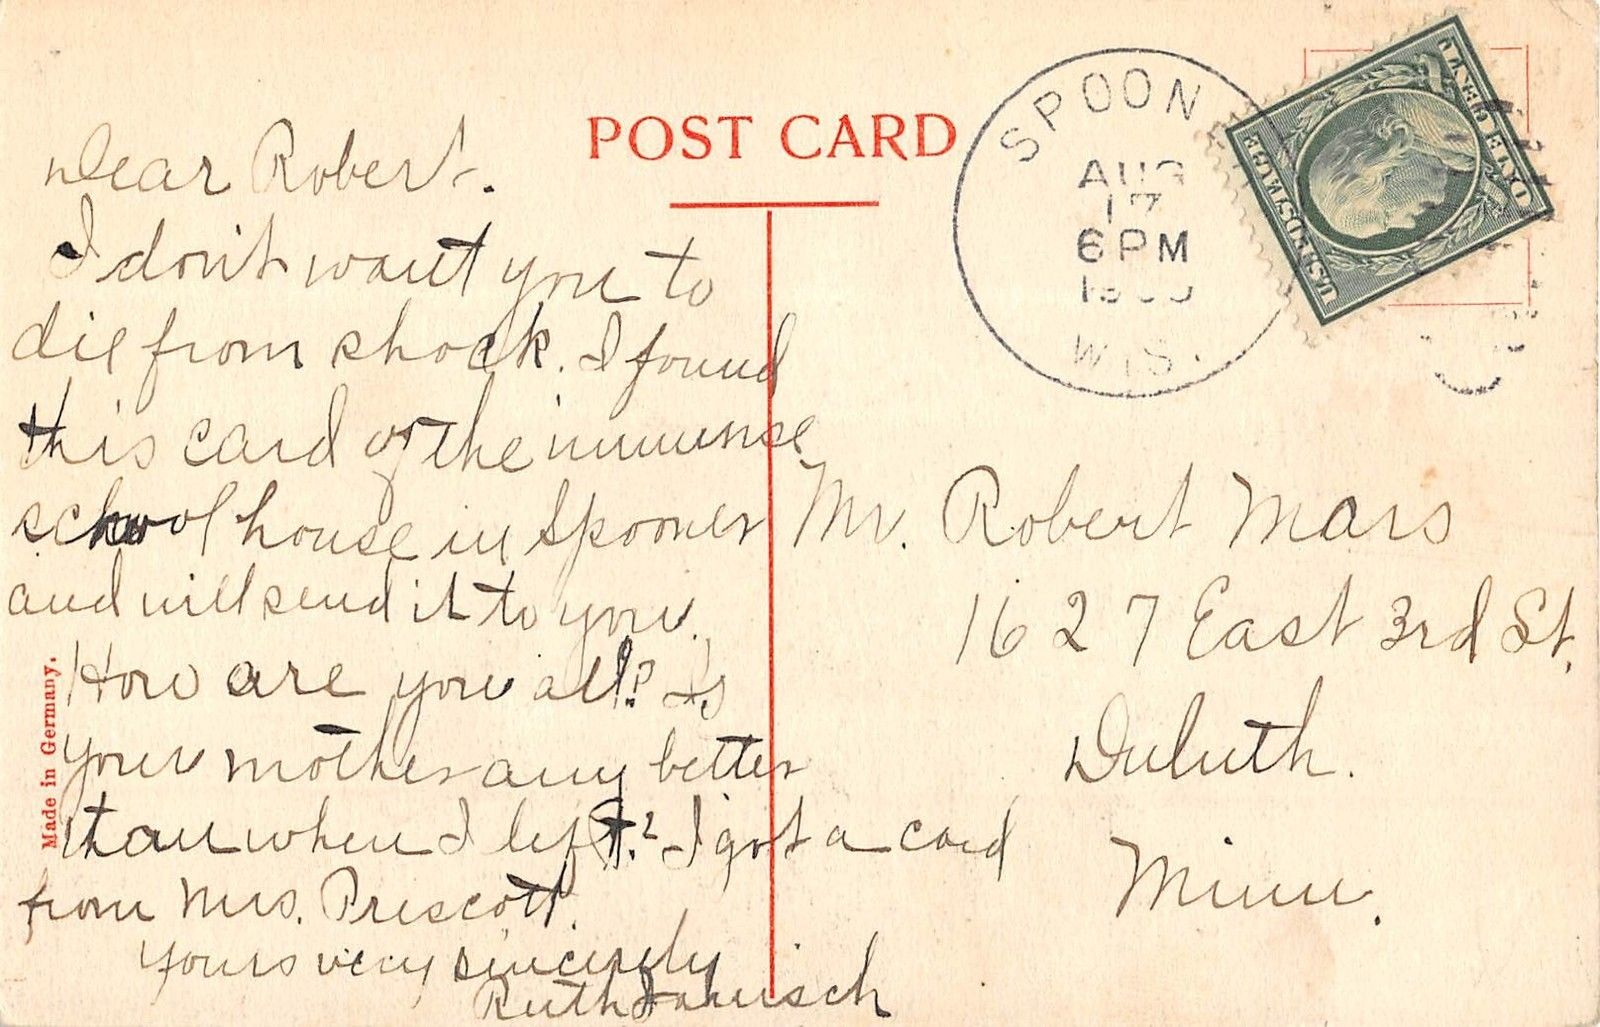 POST CARD
Dear Robert.
I don't want you to
die from shock. I found
this card of the immense
school house in Spooner
and will send it to you.
How are you all? Is
your mother any better
than when I left? I got a card
from Mrs. Prescott.
Yours very sincerely
Ruth
Made in Germany.
SPOONE
AUG
17
6 PM
WIS.
U.S. POSTAGE
ONE CENT
Mr. Robert Mars
1627 East 3rd St.
Duluth.
Minn.